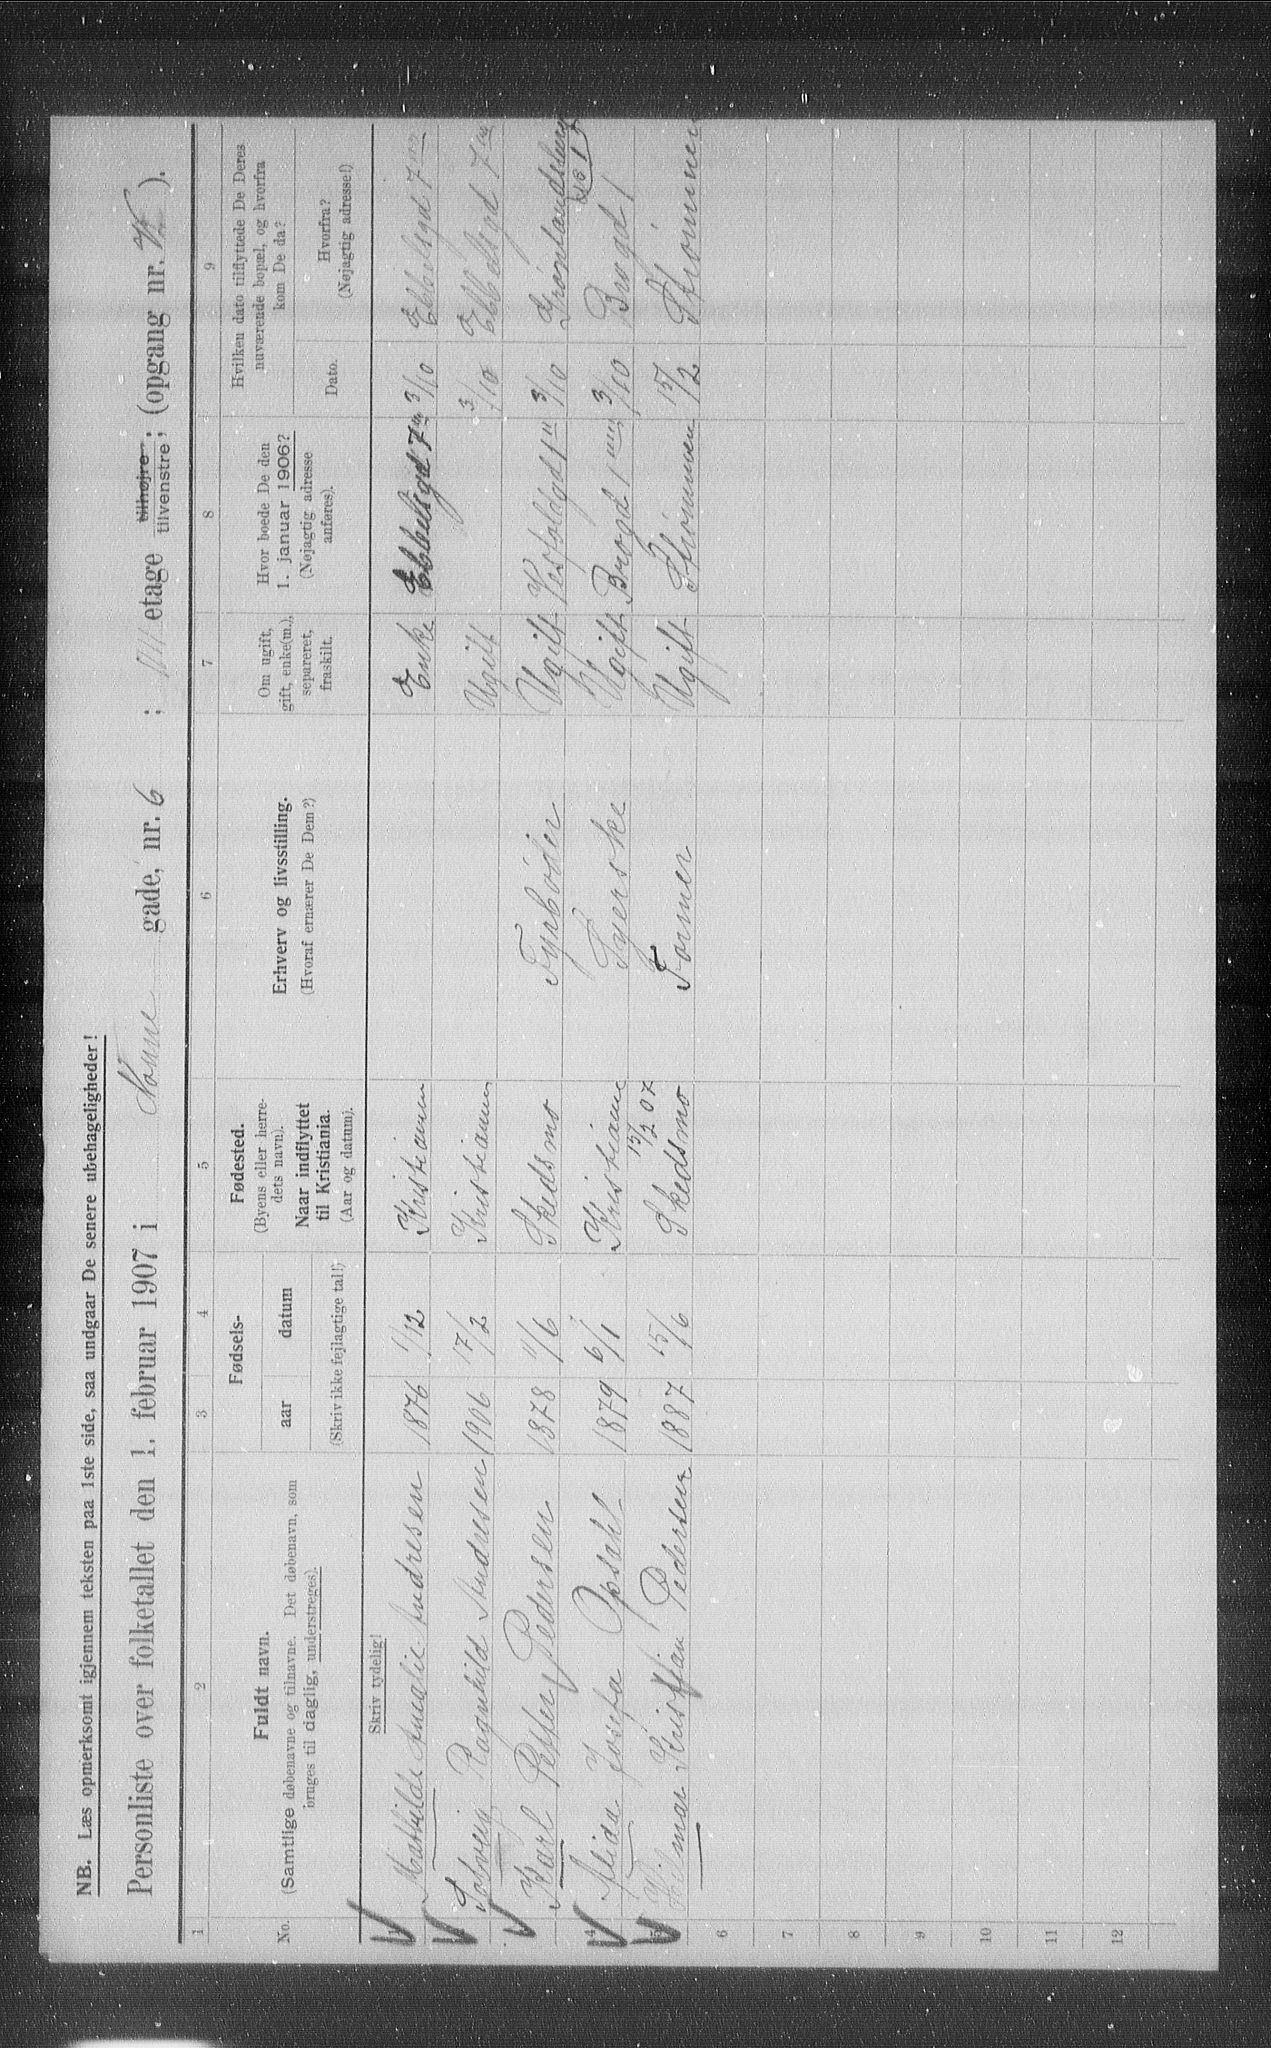 NB. Læs opmerksomt igjennem teksten paa 1ste side, saa undgaar De senere ubehageligheder!
Personliste over folketallet den 1. februar 1907 i Nonne gade, nr. 6 ; etage tilhøjre tilvenstre; (opgang nr. ).
1 2 3 4 5 6 7 8 9
No.
Fuldt navn.
(Samtlige døbenavne og tilnavne. Det døbenavn, som
bruges til daglig, understreges).
Fødsels-
aar datum
(Skriv ikke fejlagtige tal!)
Fødested.
(Byens eller herre-
dets navn).
Naar indflyttet
til Kristiania.
(Aar og datum).
Erhverv og livsstilling.
(Hvoraf ernærer De Dem?)
Om ugift,
gift, enke(m.),
separeret,
fraskilt.
Hvor boede De den
1. januar 1906?
(Nøjagtig adresse
anføres).
Hvilken dato tilflyttede De Deres
nuværende bopæl, og hvorfra
kom De da?
Dato.
Hvorfra?
(Nøjagtig adresse!)
Skriv tydelig!
Mathilde Amalie Andresen 1876 1/12 Kristiania Enke Ebbelsgd 7 3/10 Ebbelsgd 7
Solveig Ragnhild Andresen 1906 17/2 Kristiania Ugift 3/10 Ebbelsgd 7
Karl Petter Pedersen 1878 11/6 Skedsmo Fyrbøder Ugift Vestfoldgd 1 3/10 Grønlandsleret No 13
4 Alida Josefa Opsahl 1879 6/1 Kristiania Syerske Ugift Brogd 1 3/10 Brogd 1
15/2 07
5 Hilmar Kristian Pedersen 1887 15/6 Skedsmo Former Ugift Strømmen 15/2 Strømmen
6
7
8
9
10
11
12